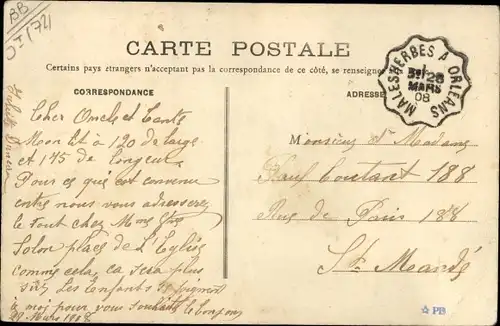 BB
CARTE POSTALE
Certains pays étrangers n'acceptant pas la correspondance de ce côté, se renseigner
CORRESPONDANCE
ADRESSE
MALESHERBES A ORLEANS
28
MARS
08
Cher Oncle et Tante
Mon lit à 120 de large
et 175 de longeur
Pour ce qui est convenu
entre nous vous adresserez
le tout chez Mme
Solon place de L'Eglise
comme cela ça sera plus
sûr Les Enfants se joignent
à moi pour vous souhaité le bonjour
Mars 1908
Monsieur et Madame
Paul Coutant 188
Rue de Paris 188
St Mandé
PB